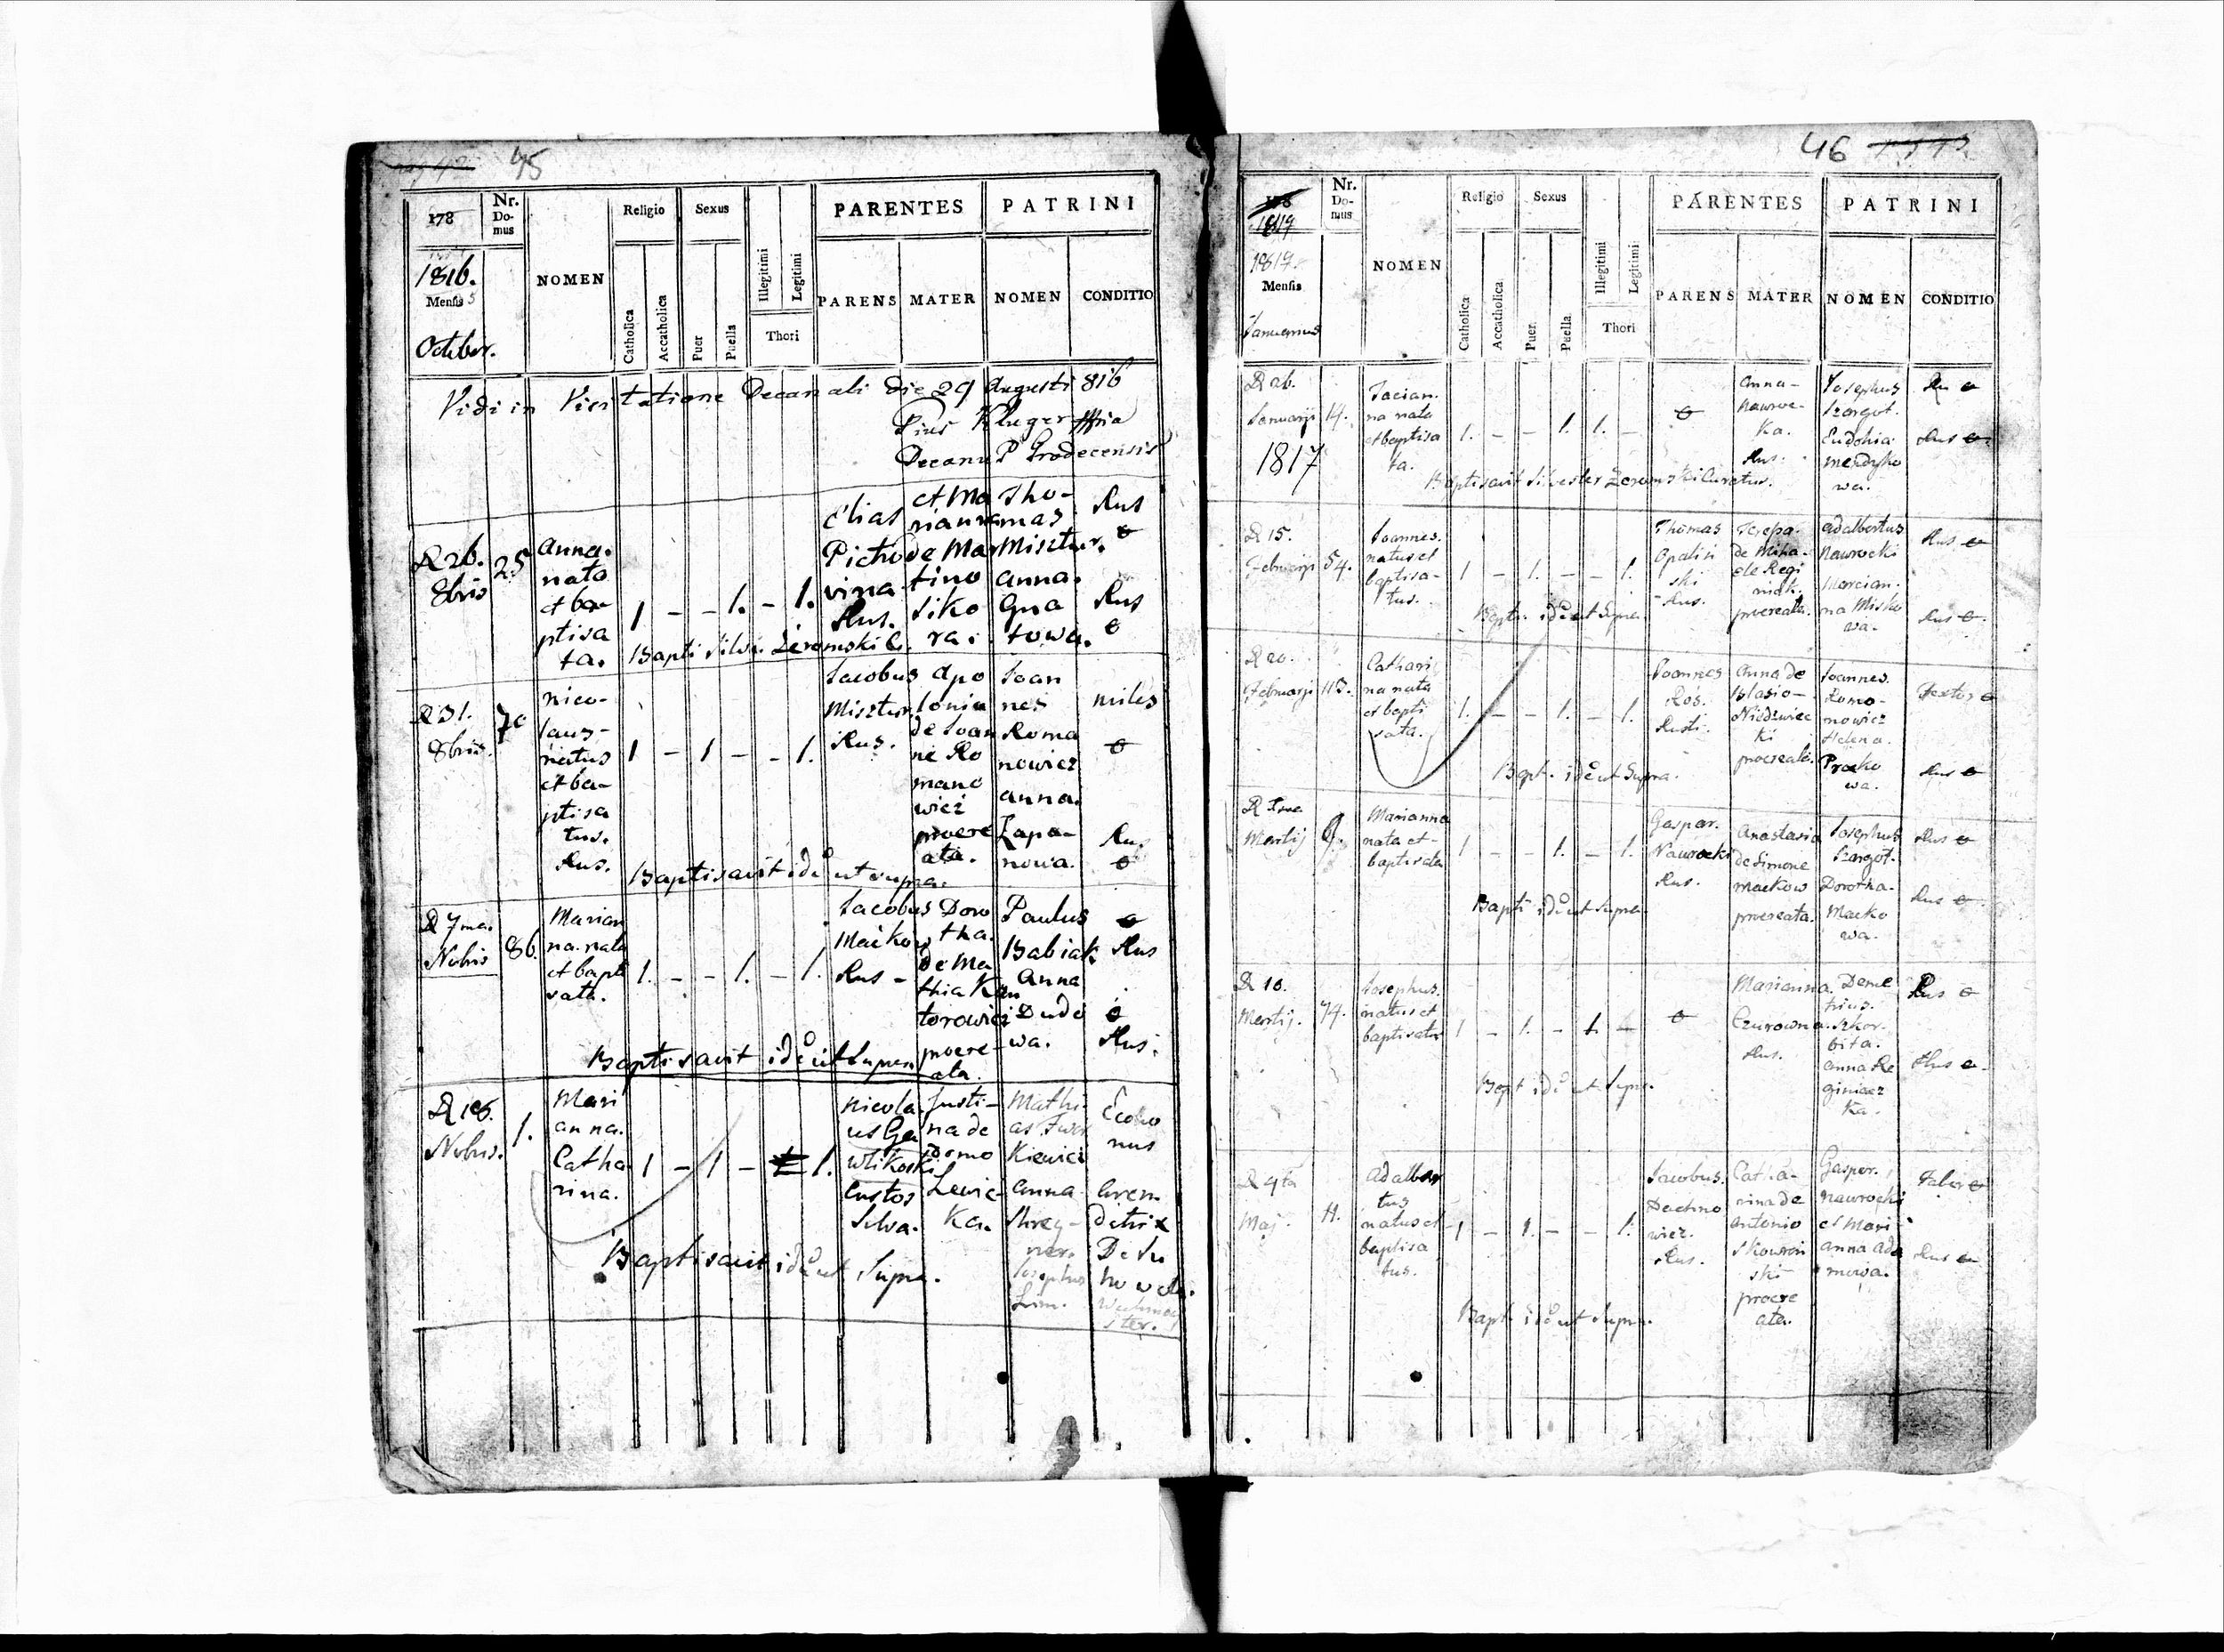 45
178
Nr. Domus
NOMEN
Religio
Sexus
PARENTES
PATRINI
1816.
Mensis
October.
Catholica
Accatholica
Puer
Puella
Illegitimi
Legitimi
Thori
PARENS
MATER
NOMEN
CONDITIO
Vidi in Visitatione Decanali die 29 Augusti 816
Pius Kluger
Decanus Grodecensis
D 26.
8bris
25
Anna.
nata
et ba-
ptisa
ta.
1 - - 1. - 1.
Elias
Picho
vina
Rus.
et Ma
rianna
de Mar
tino
Siko
ra
Tho-
mas
Misztur.
Anna.
Gna
towa.
Rus
Rus
Bapti Silve. Zeromski C.
D 31.
8bris.
70
Nico-
laus-
natus
et ba-
ptisa
tus.
Rus.
1 - 1 - - 1.
Jacobus
Misztur.
Rus.
Apo
lonia
de Joan
ne Ro
mano
wicz
procre
ata.
Joan
nes
Roma
nowicz
Anna.
Zapa-
nowa.
miles
Rus
Baptisavit idem ut supra.
D 7ma
Nobris
86.
Marian
na nata
et bapti
sata.
1. - - 1. - 1.
Jacobus
Maćkow
Rus -
Doro
tha.
de Ma
thia Kan
torowicz
procre-
ata.
Paulus
Babiak
Anna
Dudo
wa.
Rus
Rus.
Baptisavit id ut Supra
Nobris.
1.
Mari
anna.
Catha
rina.
1 - 1 - 1.
Nicola
us Ga
wlikoski
Custos
Silva.
Justi-
na de
domo
Lewic-
ka.
Mathi
as
kiewicz
Anna
Josephus
Econo
nus
Aren
datrix
Baptisavit id ut Supra.
46
1817
1817.
Nr. Domus
NOMEN
Religio
Sexus
PARENTES
PATRINI
Mensis
Januarius
Catholica
Accatholica.
Puer.
Puella
Illegitimi
Legitimi
Thori
PARENS
MATER
NOMEN
CONDITIO
D 26.
Januarij
1817
14.
Tacian.
na nata
et baptisa
ta.
1. - - 1. 1. -
Anna-
Nawroc-
ka.
Rus.
Josephus
Szargot.
Eudohia
mendryko
wa.
Rus
Rus
Baptisavit Silvester Zeromski Curatus.
D 15.
Februarij
54.
Joannes.
natus et
baptisa-
tus.
1 - 1. - - 1.
Thomas
Opaliń
ski
Rus.
de Micha
ele Regi
niak.
procreata.
Adalbertus
Nawrocki
Marcian.
na Misko
wa-
Rus
Rus
Bapti. id ut Supra.
D 20.
Februarij
113.
Cathari
na nata
et bapti
sata.
1. - - 1. - 1.
Joannes
Ros.
Rusti.
Anna de
Blasio-
Niedzwiec
ki
procreata.
Joannes.
Romo-
nowicz
Helena.
Procko
wa.
Textor
Rus
Bapt. id ut Supra.
Martij
9.
Marianna
nata et-
baptisata
1 - - 1. - 1.
Gaspar.
Nawrocki
Rus.
Anastasia
de Simone
Maćkow
procreata.
Josephus
Szargot.
Dorotha.
Macko
wa.
Rus
Rus
Bapti id ut Supra
D 10.
Martij.
74.
Josephus.
natus et
baptisatus
1 - 1. - 1. -
Marianna.
Czurowna.
Rus.
Deme
trius.
Szkor-
bita.
Anna Re
giniacz
ka.
Rus
Rus
Bapt id ut Supra.
D 9ta
Maj.
11.
Adalber
tus
natus et
baptisa
tus.
1 - 1. - - 1.
Jacobus.
Dachno
wicz.
Rus.
Catha-
rina de
Antonio
Skowroń
ski
procre
ata.
Gasper.
Nawrocki
et Mari
anna Ada
mowa.
Faber
Rus
Bapt. id ut Supra.